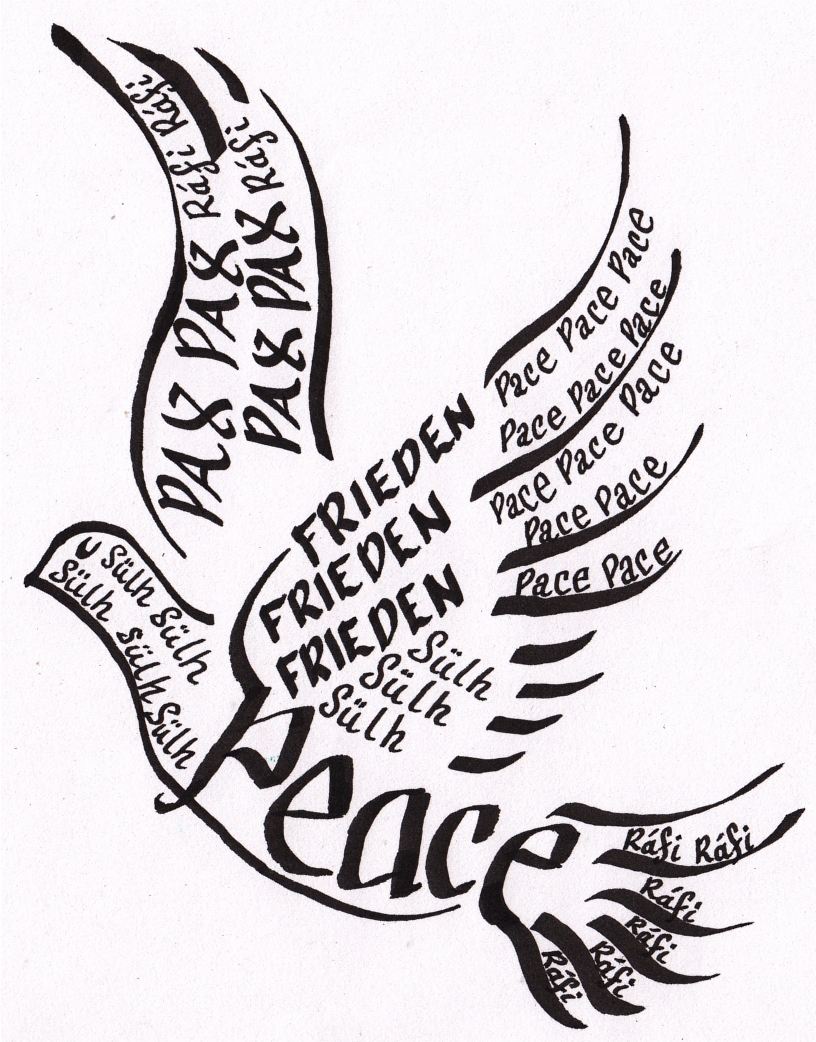 Ráfi Ráfi
Ráfi
PAX PAX
PAX PAX
Pace Pace Pace
Pace Pace Pace
Pace Pace Pace
Pace Pace
Pace Pace
FRIEDEN
FRIEDEN
FRIEDEN
Sülh Sülh
Sülh Sülh Sülh
Sülh
Sülh
Sülh
Peace
Ráfi Ráfi
Ráfi
Ráfi
Ráfi
Ráfi